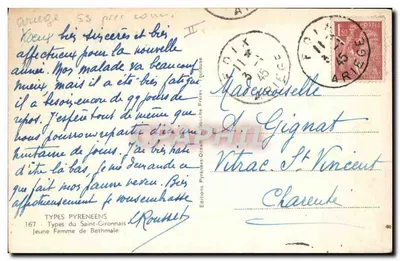 Vœux bien sincères et très
affectueux pour la nouvelle
année. Mon malade va beaucoup
mieux, mais il a été très fatigué
il a besoin encore de 99 jours de
repos. J'espère tout de même que
nous pourrons repartir d'ici une
huitaine de jours. J'ai très hâte
d'être là bas, je me demande ce
que fait mon pauvre
affectueusement je vous embrasse
Rousset
TYPES PYRENEENS
167 - Types du Saint-Gironnais
Jeune Femme de Bethmale
FOIX
ARIEGE
FOIX
ARIEGE
Mademoiselle
A Gignat
Vitrac St Vincent
Charente